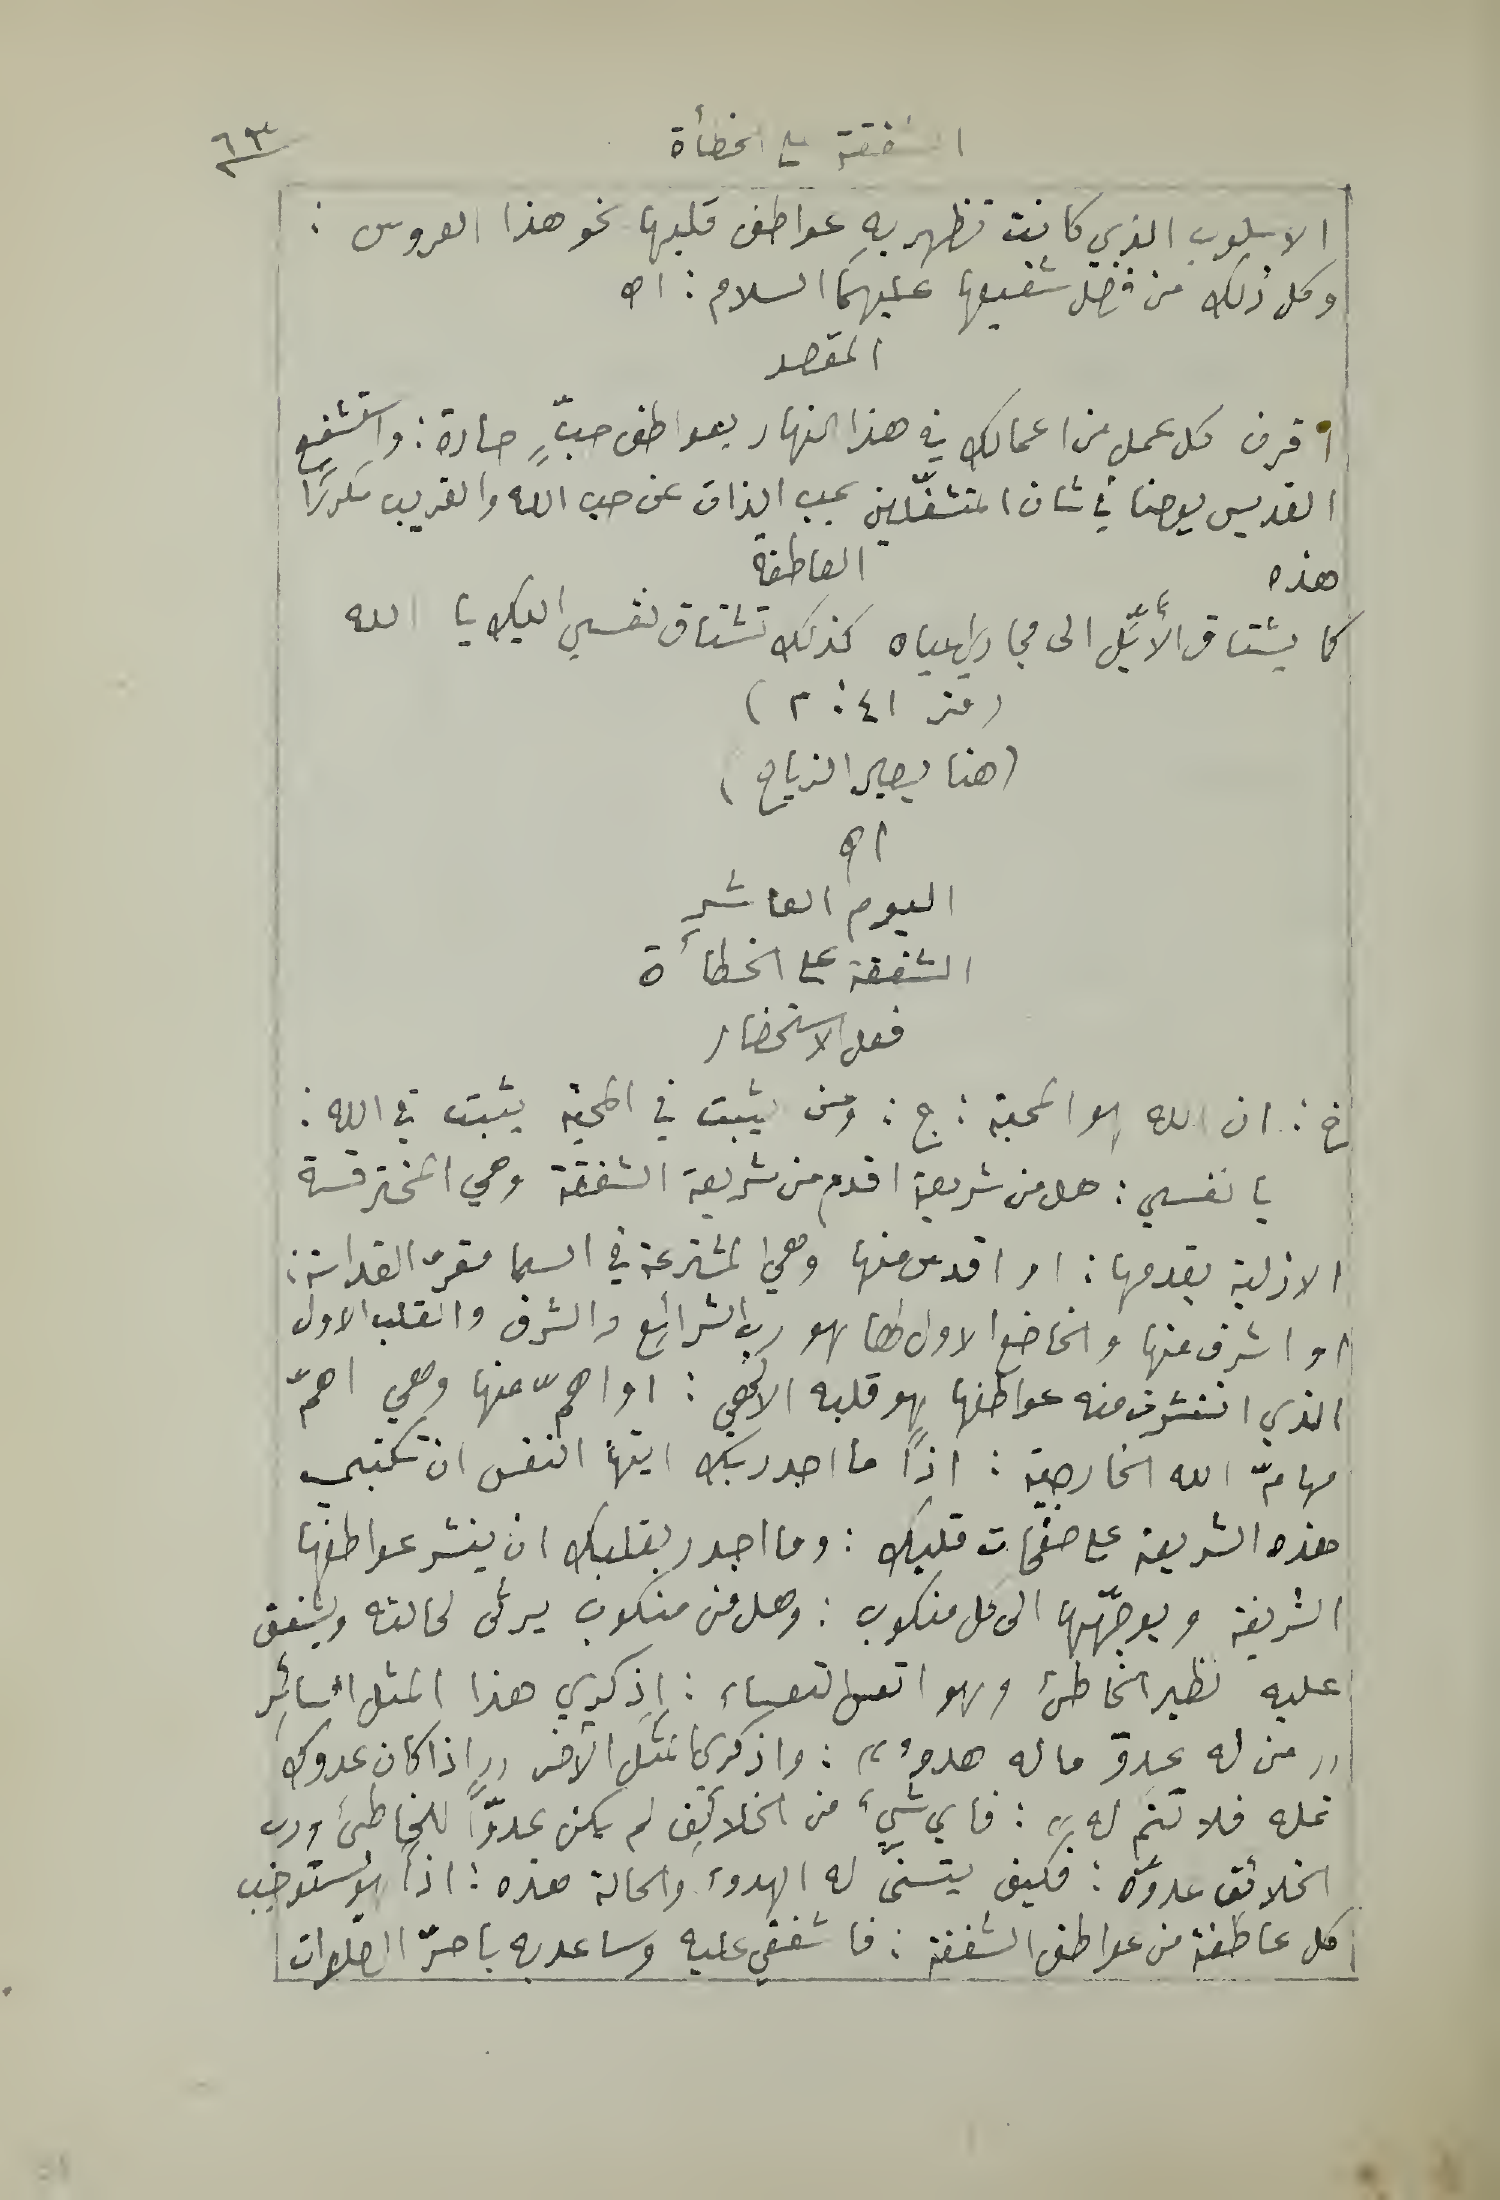 الشفقة على الخطأة ٦٣
الاسلوب الذي كانت تظهر به عواطف قلبها نحو هذا العروس :
وكل ذلك من فضل شفيعها عليهما السلام : اه
المقصد
اقرن كل عمل من اعمالك في هذا النهار بعواطف حبٍّ حارة : واستشفع
القديس يوحنا في شان المنشغلين بحب الذات عن حب الله والقريب مكررًا
هذه العاطفة
كما يشتاق الأيّل الى مجاري المياه كذلك تشتاق نفسي اليك يا الله
(مز ٤١ : ٢)
(هنا يصير الزياح)
اه
اليوم العاشر
الشفقة على الخطأة
فعل الاستحضار
خ : ان الله هو المحبة : ج : ومن يثبت في المحبة يثبت في الله :
يا نفسي : هل من شريعة اقدم من شريعة الشفقة وهي
الازلية بقدمها : او اقدس منها وهي المشترعة في السما مقرّ القداسة :
او اشرف منها والخاضع الاول لها هو رب الشرائع والشرف والقلب الاول
الذي انتشرت منه عواطفها هو قلبه الالهي : او اهمّ منها وهي اهمّ
مهامّ الله الخارجية : اذًا ما اجدر بك ايتها النفس ان تكتبي
هذه الشريعة على صفحات قلبك : وما اجدر بقلبك ان ينشر عواطفها
الشريفة ويوجّهها الى كل منكوب : وهل من منكوب يرثى لحالته ويشفق
عليه نظير الخاطئ وهو اتعس التعساء : اذكري هذا المثل السائر
«من له عدوّ ما له هدوء» : واذكري المثل الآخر «اذا كان عدوك
نمله فلا تنم له» : فاي شيء من الخلائق لم يكن عدوًّا للخاطئ ورب
الخلائق عدوّه : فكيف يتسنّى له الهدوء والحالة هذه : اذًا هو مستوجب
كل عاطفة من عواطف الشفقة : فاشفقي عليه وساعديه باحرّ الصلوات